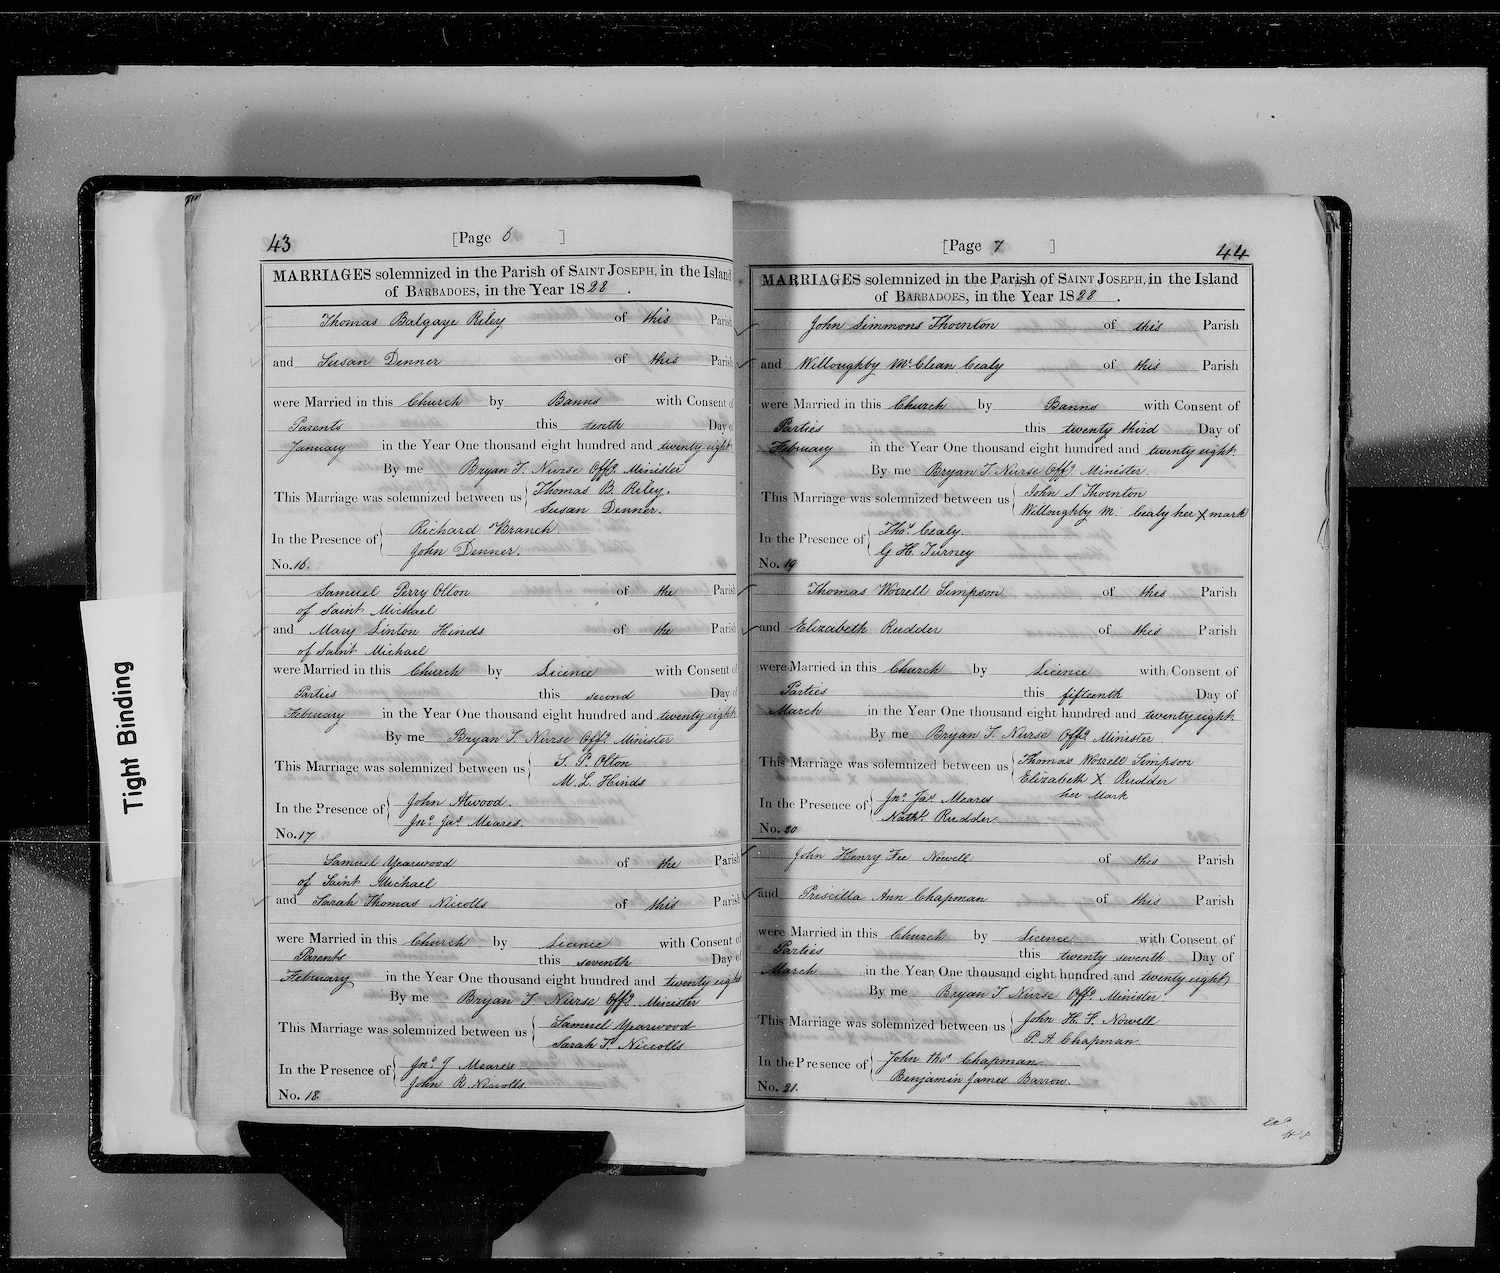 Tight Binding
43
[Page 6 ]
MARRIAGES solemnized in the Parish of SAINT JOSEPH, in the Island
of BARBADOES, in the Year 1828 .
Thomas Balgaye Riley of this Parish
and Susan Denner of this Parish
were Married in this Church by Banns with Consent of
Parents this tenth Day of
January in the Year One thousand eight hundred and twenty eight
By me Bryan T. Nurse Offg. Minister
This Marriage was solemnized between us { Thomas B. Riley.
Susan Denner.
In the Presence of { Richard Branch
John Denner.
No. 16.
Samuel Perry Olton of the Parish
of Saint Michael
and Mary Linton Hinds of the Parish
of Saint Michael
were Married in this Church by Licence with Consent of
Parties this second Day of
February in the Year One thousand eight hundred and twenty eight
By me Bryan T. Nurse Offg. Minister
This Marriage was solemnized between us { S. P. Olton
M. L. Hinds
In the Presence of { John Atwood.
Jno. Jas. Meares.
No. 17
Samuel Yearwood of the Parish
of Saint Michael
and Sarah Thomas Niccolls of this Parish
were Married in this Church by Licence with Consent of
Parents this seventh Day of
February in the Year One thousand eight hundred and twenty eight
By me Bryan T. Nurse Offg. Minister
This Marriage was solemnized between us { Samuel Yearwood
Sarah T. Niccolls
In the Presence of { Jno. J Meares
John R. Niccolls
No. 18
[Page 7 ]
44
MARRIAGES solemnized in the Parish of SAINT JOSEPH, in the Island
of BARBADOES, in the Year 1828 .
John Simmons Thornton of this Parish
and Willoughby McClean Cealy of this Parish
were Married in this Church by Banns with Consent of
Parties this twenty third Day of
February in the Year One thousand eight hundred and twenty eight
By me Bryan T. Nurse Offg. Minister
This Marriage was solemnized between us { John S. Thornton
Willoughby M. Cealy her X mark
In the Presence of { Thos. Cealy.
G H. Turney
No. 19
Thomas Worrell Simpson of this Parish
and Elizabeth Rudder of this Parish
were Married in this Church by Licence with Consent of
Parties this fifteenth Day of
March in the Year One thousand eight hundred and twenty eight
By me Bryan T. Nurse Offg. Minister
This Marriage was solemnized between us { Thomas Worrell Simpson
Elizabeth X Rudder
her Mark
In the Presence of { Jno. Jas. Meares
Nathl. Rudder
No. 20
John Henry Fee Nowell of this Parish
and Priscilla Ann Chapman of this Parish
were Married in this Church by Licence with Consent of
Parties this twenty seventh Day of
March in the Year One thousand eight hundred and twenty eight
By me Bryan T Nurse Offg. Minister
This Marriage was solemnized between us { John H. F. Nowell
P. A Chapman.
In the Presence of { John Thos. Chapman
Benjamin James Barrow.
No. 21.